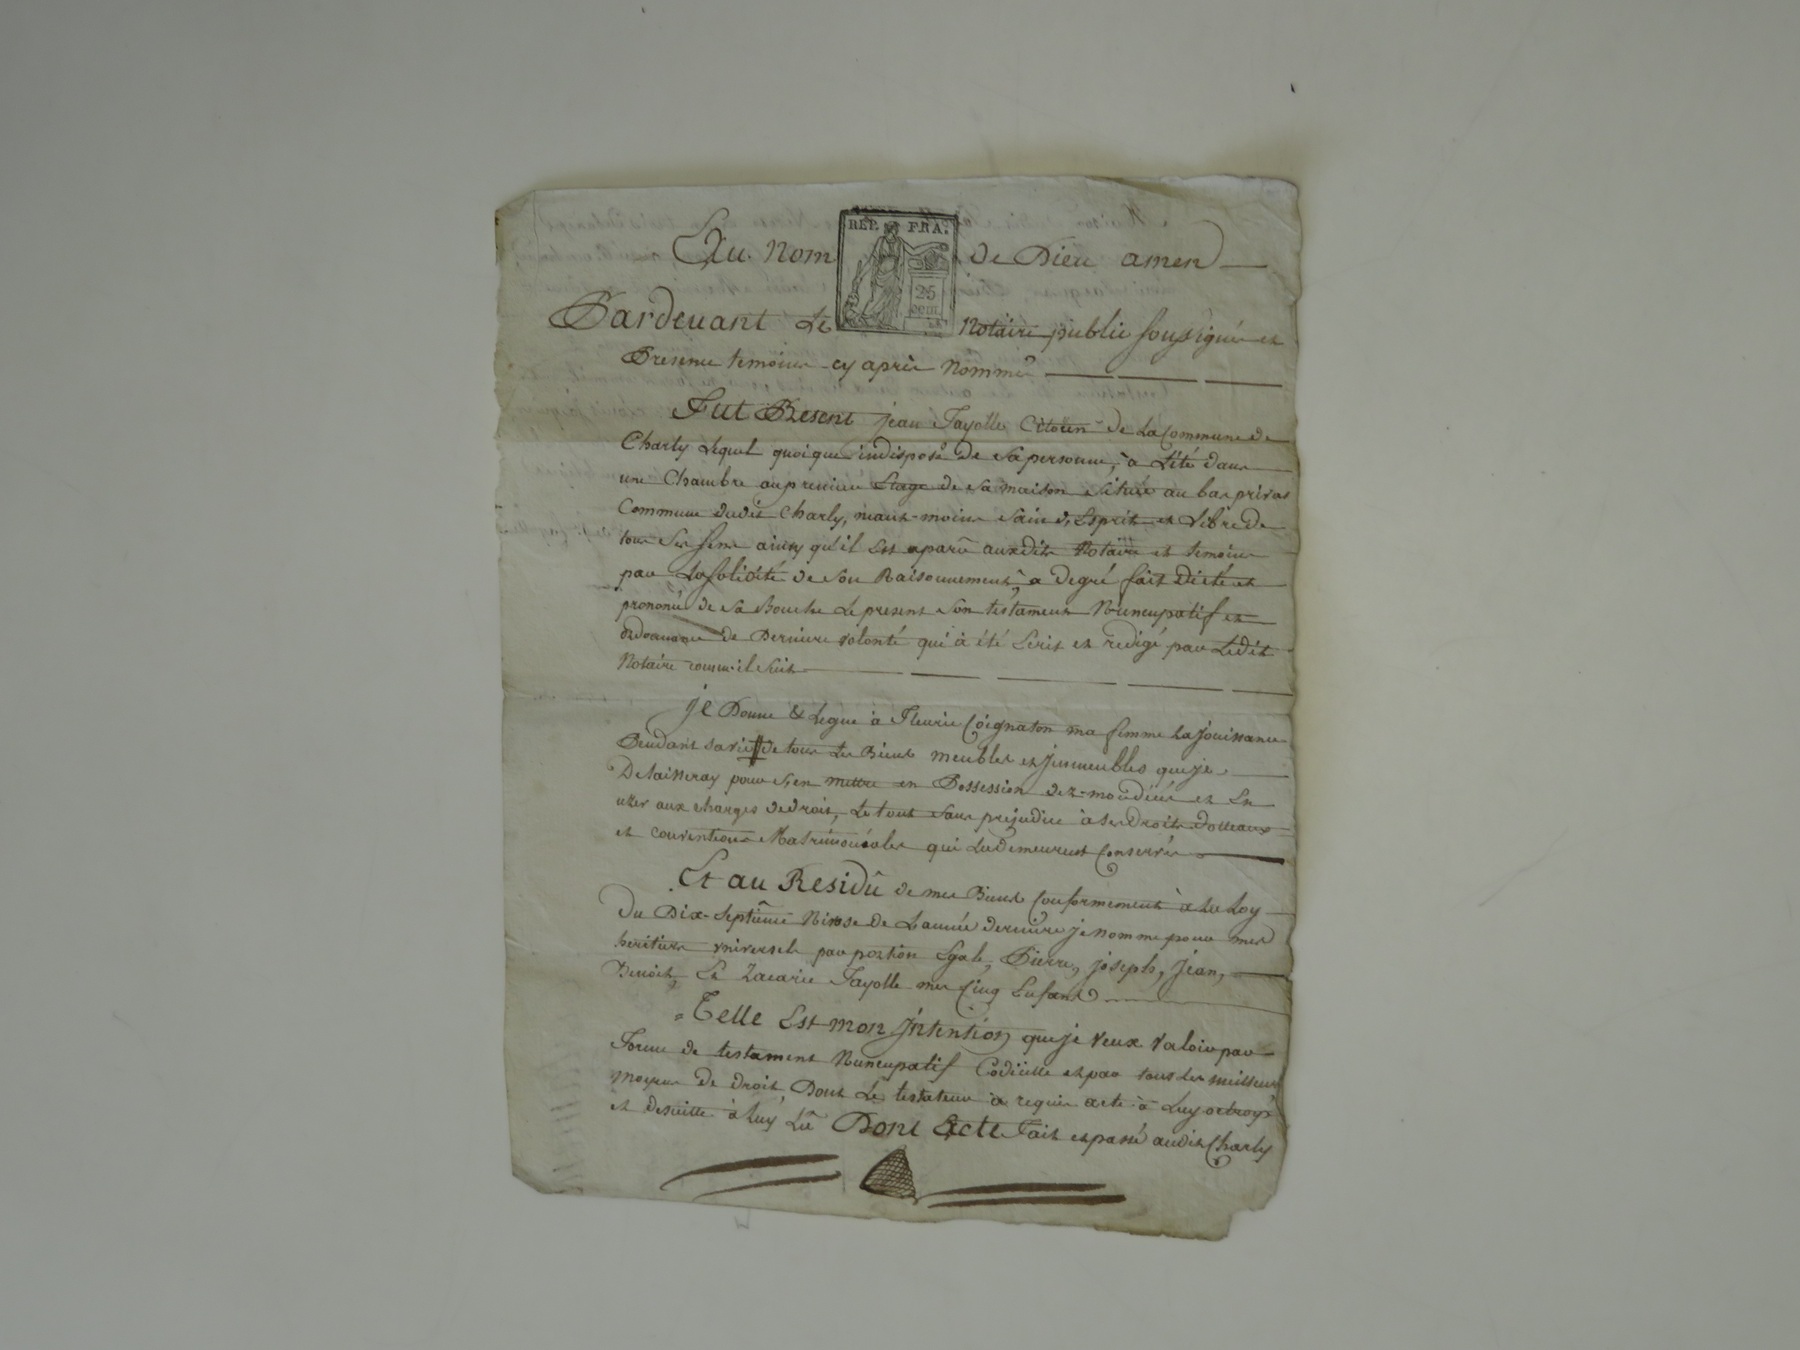 REP. FRA.
25
cent.
Au Nom de Dieu amen
Pardevant Le Notaire public soussigné et
Presence temoins cy après Nommés
Fut Present jean Fayolle Citoien de La Commune de
Charly Lequel quoique indisposé de sa personne, à Lété dans
une Chambre au premier Etage de sa maison située au bas privas
Commune dudit Charly, maux-moins sain d'Esprit et Libre de
tous ses sens ainsy qu'il Est aparû auxdits Notaire et temoins
par La solidité de son Raisonnement, a degré fait Dicté et
prononcé de sa Bouche Le present son testament Nuncupatif et
ordonnance de Derniere volonté qui à été Ecrit et redigé par Ledit
Notaire comme il suit
je Donne & Legue à Fleurie Coignaton ma femme La jouissance
Pendant sa vie de tous Les Biens meubles et jmmeubles que je
Delaisseray pour s'en mettre en Possession dez-mon décés et En
user aux charges de droit, Le tout sans prejudice à ses Droits Dotteaux
et conventions Matrimoniales qui Lui demeurent Conservés
Et au Residû de mes Biens Conformement à La Loy
Du Dix-Septiême Nivose de L'année derniere je nomme pour mes
heritiers vniversels par portion Egale, Pierre, joseph, jean,
Benoit, Et Zacarie Fayolle mes Cinq Enfans
Telle Est mon jntention que je veux valoir par
Forme de testament Nuncupatif Codicille et par tous les meilleurs
moyens de droit, Dont Le testateur à requis acte à Luy octroyé
et desuitte à Luy Lû Dont Acte Fait et passé audit Charly